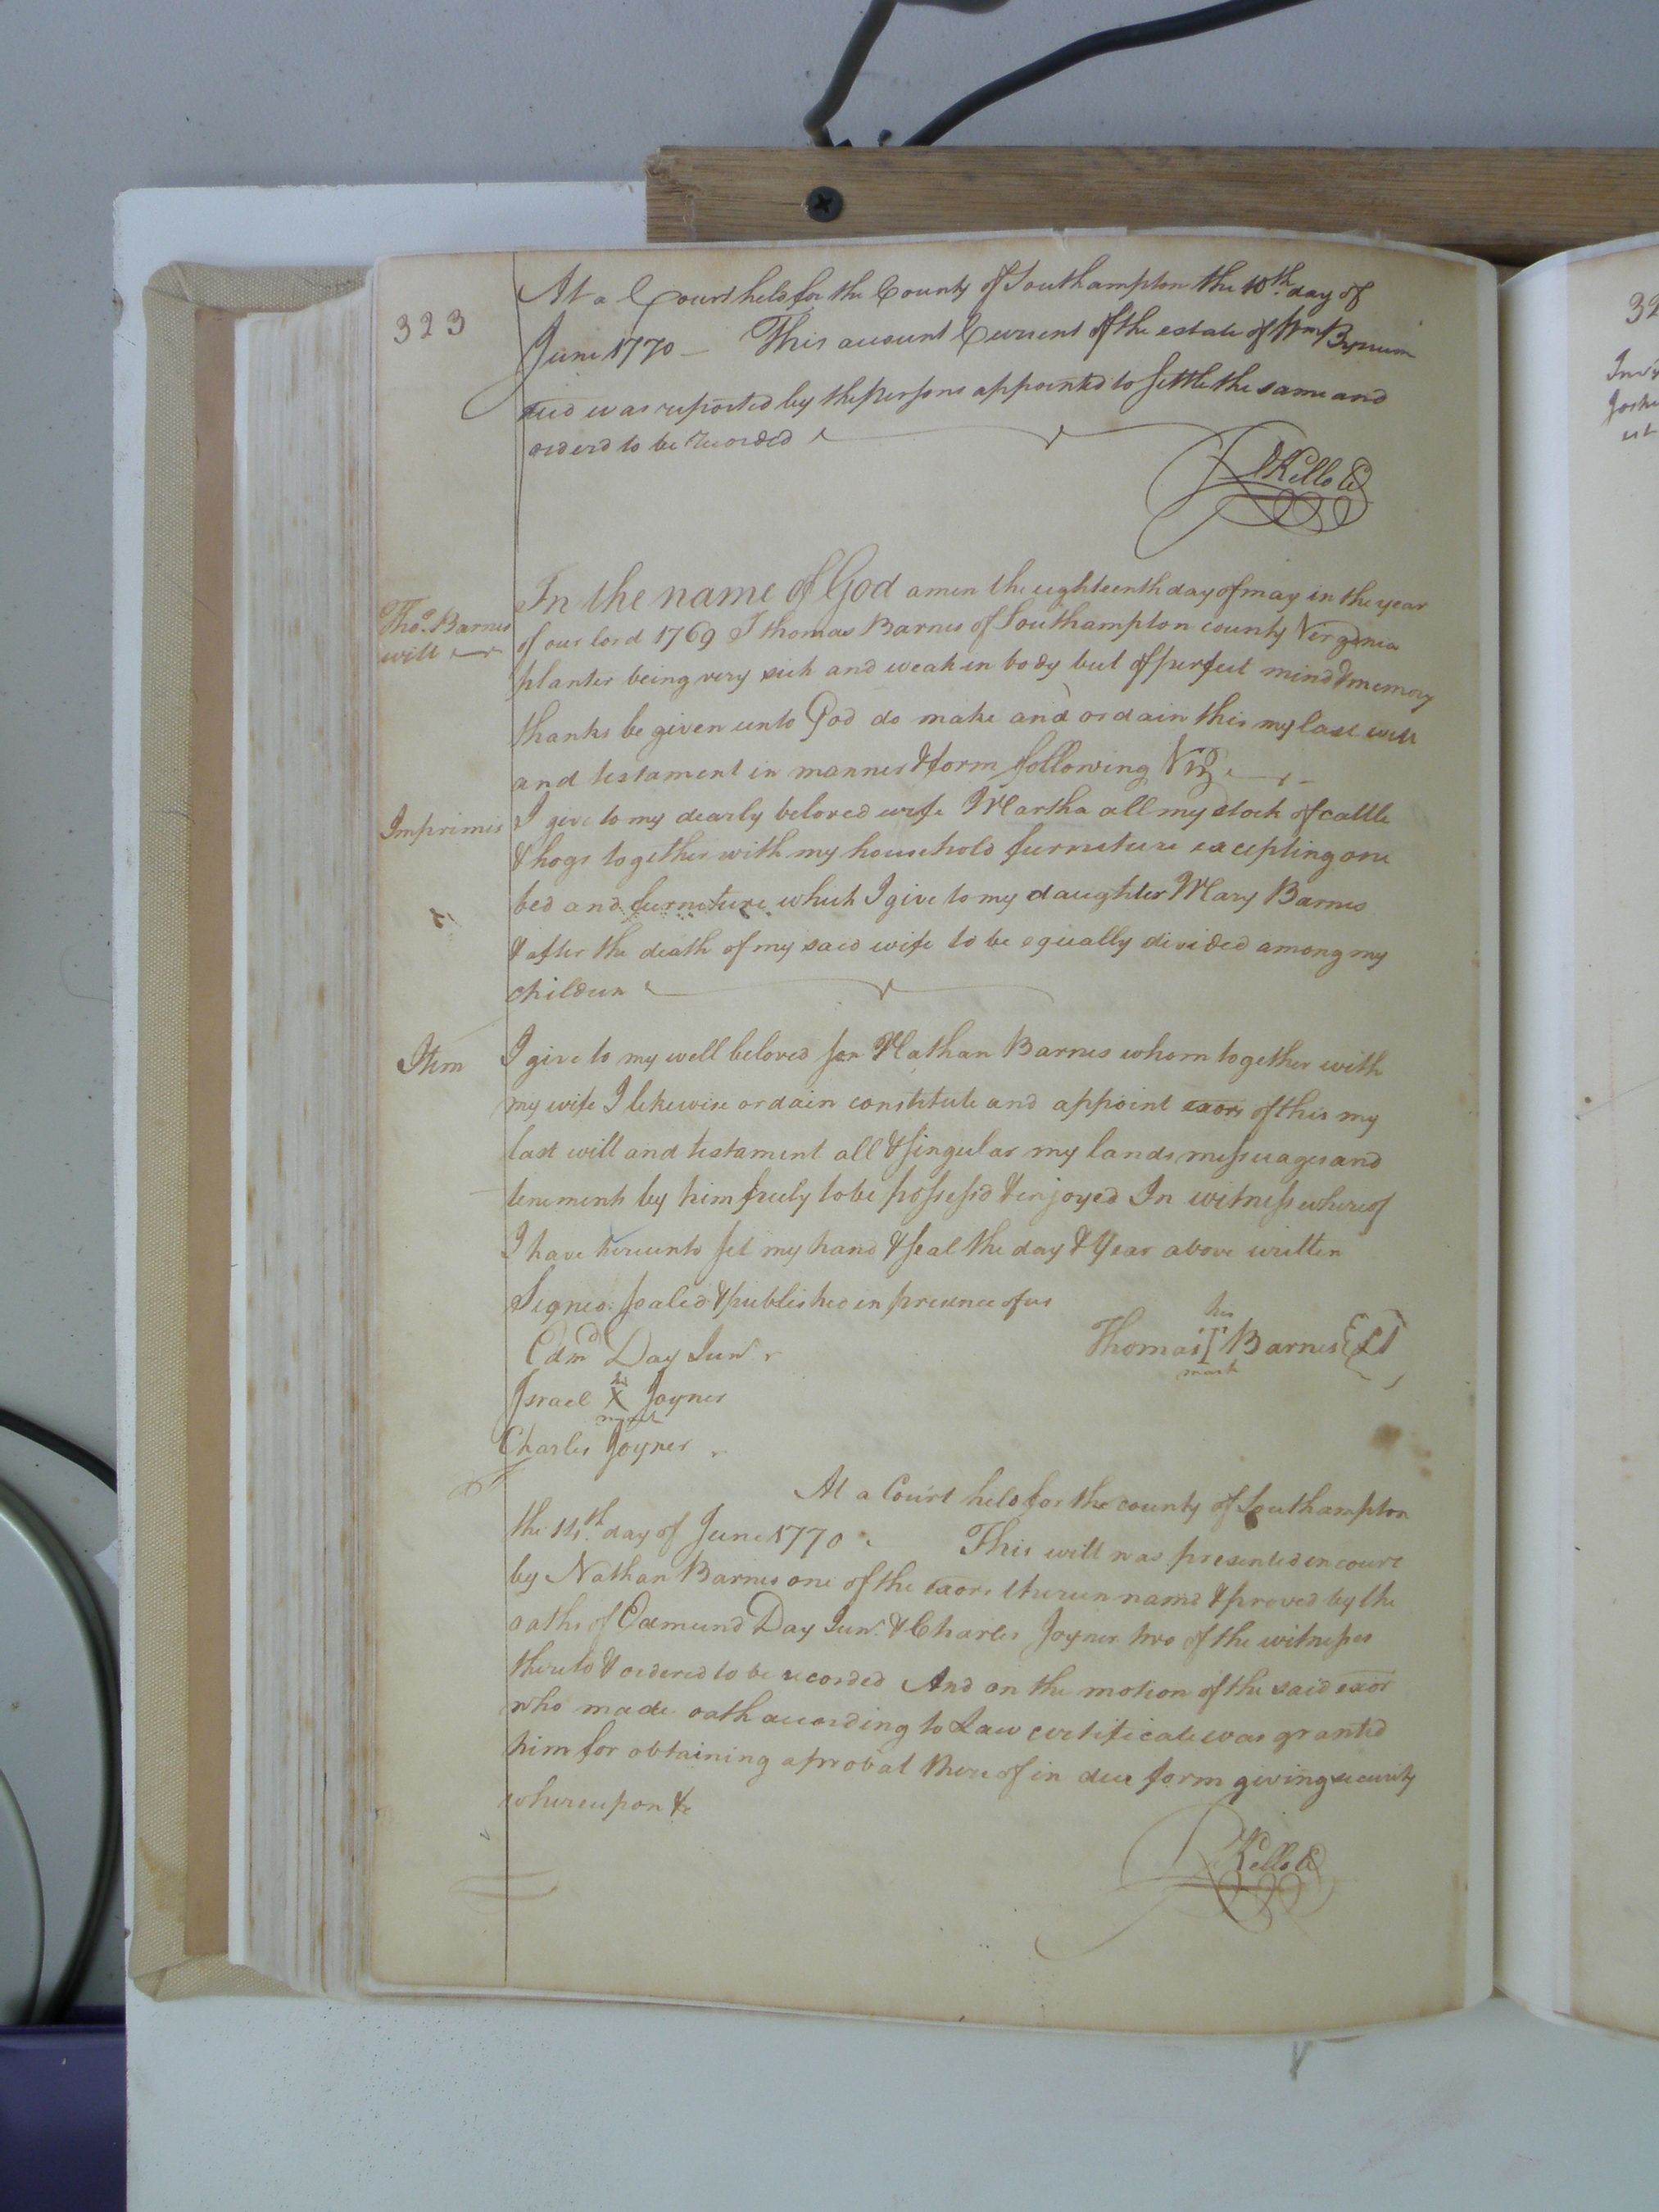 323
At a Court held for the County of Southampton the 10th day of
June 1770 — This account Current of the estate of Wm Bynum
decd was reported by the persons appointed to settle the same and
orderd to be recorded
RKello Cl
Thos. Barnes
will
In the name of God amen the eighteenth day of may in the year
of our lord 1769 I thomas Barnes of Southampton county Virginia
planter being very sick and weak in body but of perfect mind & memory
thanks be given unto God do make and ordain this my last will
and testament in manner & form following Viz
Imprimis I give to my dearly beloved wife Martha all my stock of cattle
& hogs together with my household furniture excepting one
bed and furniture which I give to my daughter Mary Barnes
& after the death of my said wife to be equally divided among my
children
Item I give to my well beloved son Nathan Barnes whom together with
my wife I likewise ordain constitute and appoint exors of this my
last will and testament all & singular my lands messuages and
tenements by him freely to be possessd & enjoyed In witness whereof
I have hereunto set my hand & seal the day & Year above written
Signed sealed & published in presence of us
his
Edmd Day Junr Thomas T Barnes LS
mark
his
Israel X Joyner
mark
Charles Joyner
At a Court held for the county of Southampton
the 14th day of June 1770 This will was presented in court
by Nathan Barnes one of the exors therein named & proved by the
oaths of Edmund Day Junr. & Charles Joyner two of the witnesses
thereto & ordered to be recorded And on the motion of the said exor
who made oath according to Law certificate was granted
him for obtaining a probat thereof in due form giving security
whereupon &c
RKello Cl
32